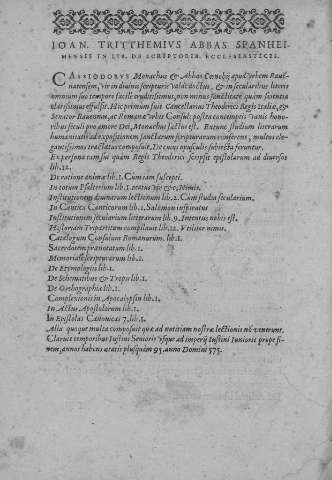 IOAN. TRITTHEMIVS ABBAS SPANHEI-
MENSIS IN LIB. DE SCRIPTORIB. ECCLESIASTICIS.
CASSIODORVS Monachus & Abbas Cenobij apud vrbem Rauen-
natensem, vir in diuinis scripturis valde doctus, & in secularibus literis
omnium suo tempore facile eruditissimus, non minus sanctitate quàm scientia
clarissimus effulsit. Hic primum fuit Cancellarius Theodorici Regis Italiæ, ex
Senator Rauennæ, ac Romanæ vrbis Consul: postea contemptis vanis hono-
ribus seculi pro amore Dei, Monachus factus est. Et tunc studium literarum
humanitatis ad expositionem sanctarum scripturarum conferens, multos ele-
gantissimos tractatus composuit. De cuius opusculis subiecta feruntur.
Ex persona tamen quàm Regis Theodorici scripsit epistolarum ad diuersos
lib. 12.
De ratione animæ lib. 1. Cum iam suscepti.
In totum Psalterium lib. 1.
Institutionem diuinarum lectionum lib. 2. Cum studia secularium.
In Cantica Canticorum lib. 1. Salomon inspiratus
Institutionem secularium literarum lib. 9. Intentus nobis est.
Historiam Tripartitam compilauit lib. 12. Vtiliter nimis.
Catalogum Consulum Romanorum. lib. 1.
Sacerdotem prænotatum lib. 1.
Memoriale scripturarum lib. 1.
De Etymologiis lib. 1.
De Schematibus & Tropis lib. 1.
De Orthographia lib. 1.
Complexiones in Apocalypsin lib. 1.
In Actus Apostolorum lib. 1.
In Epistolas Canonicas 7. lib. 5.
Alia quoque multa composuit quæ ad notitiam nostræ lectionis non venerunt.
Claruit temporibus Iustini Senioris vsque ad imperij Iustini Iunioris prope fi-
nem, annos habens ætatis plusquàm 95. anno Domini 575.